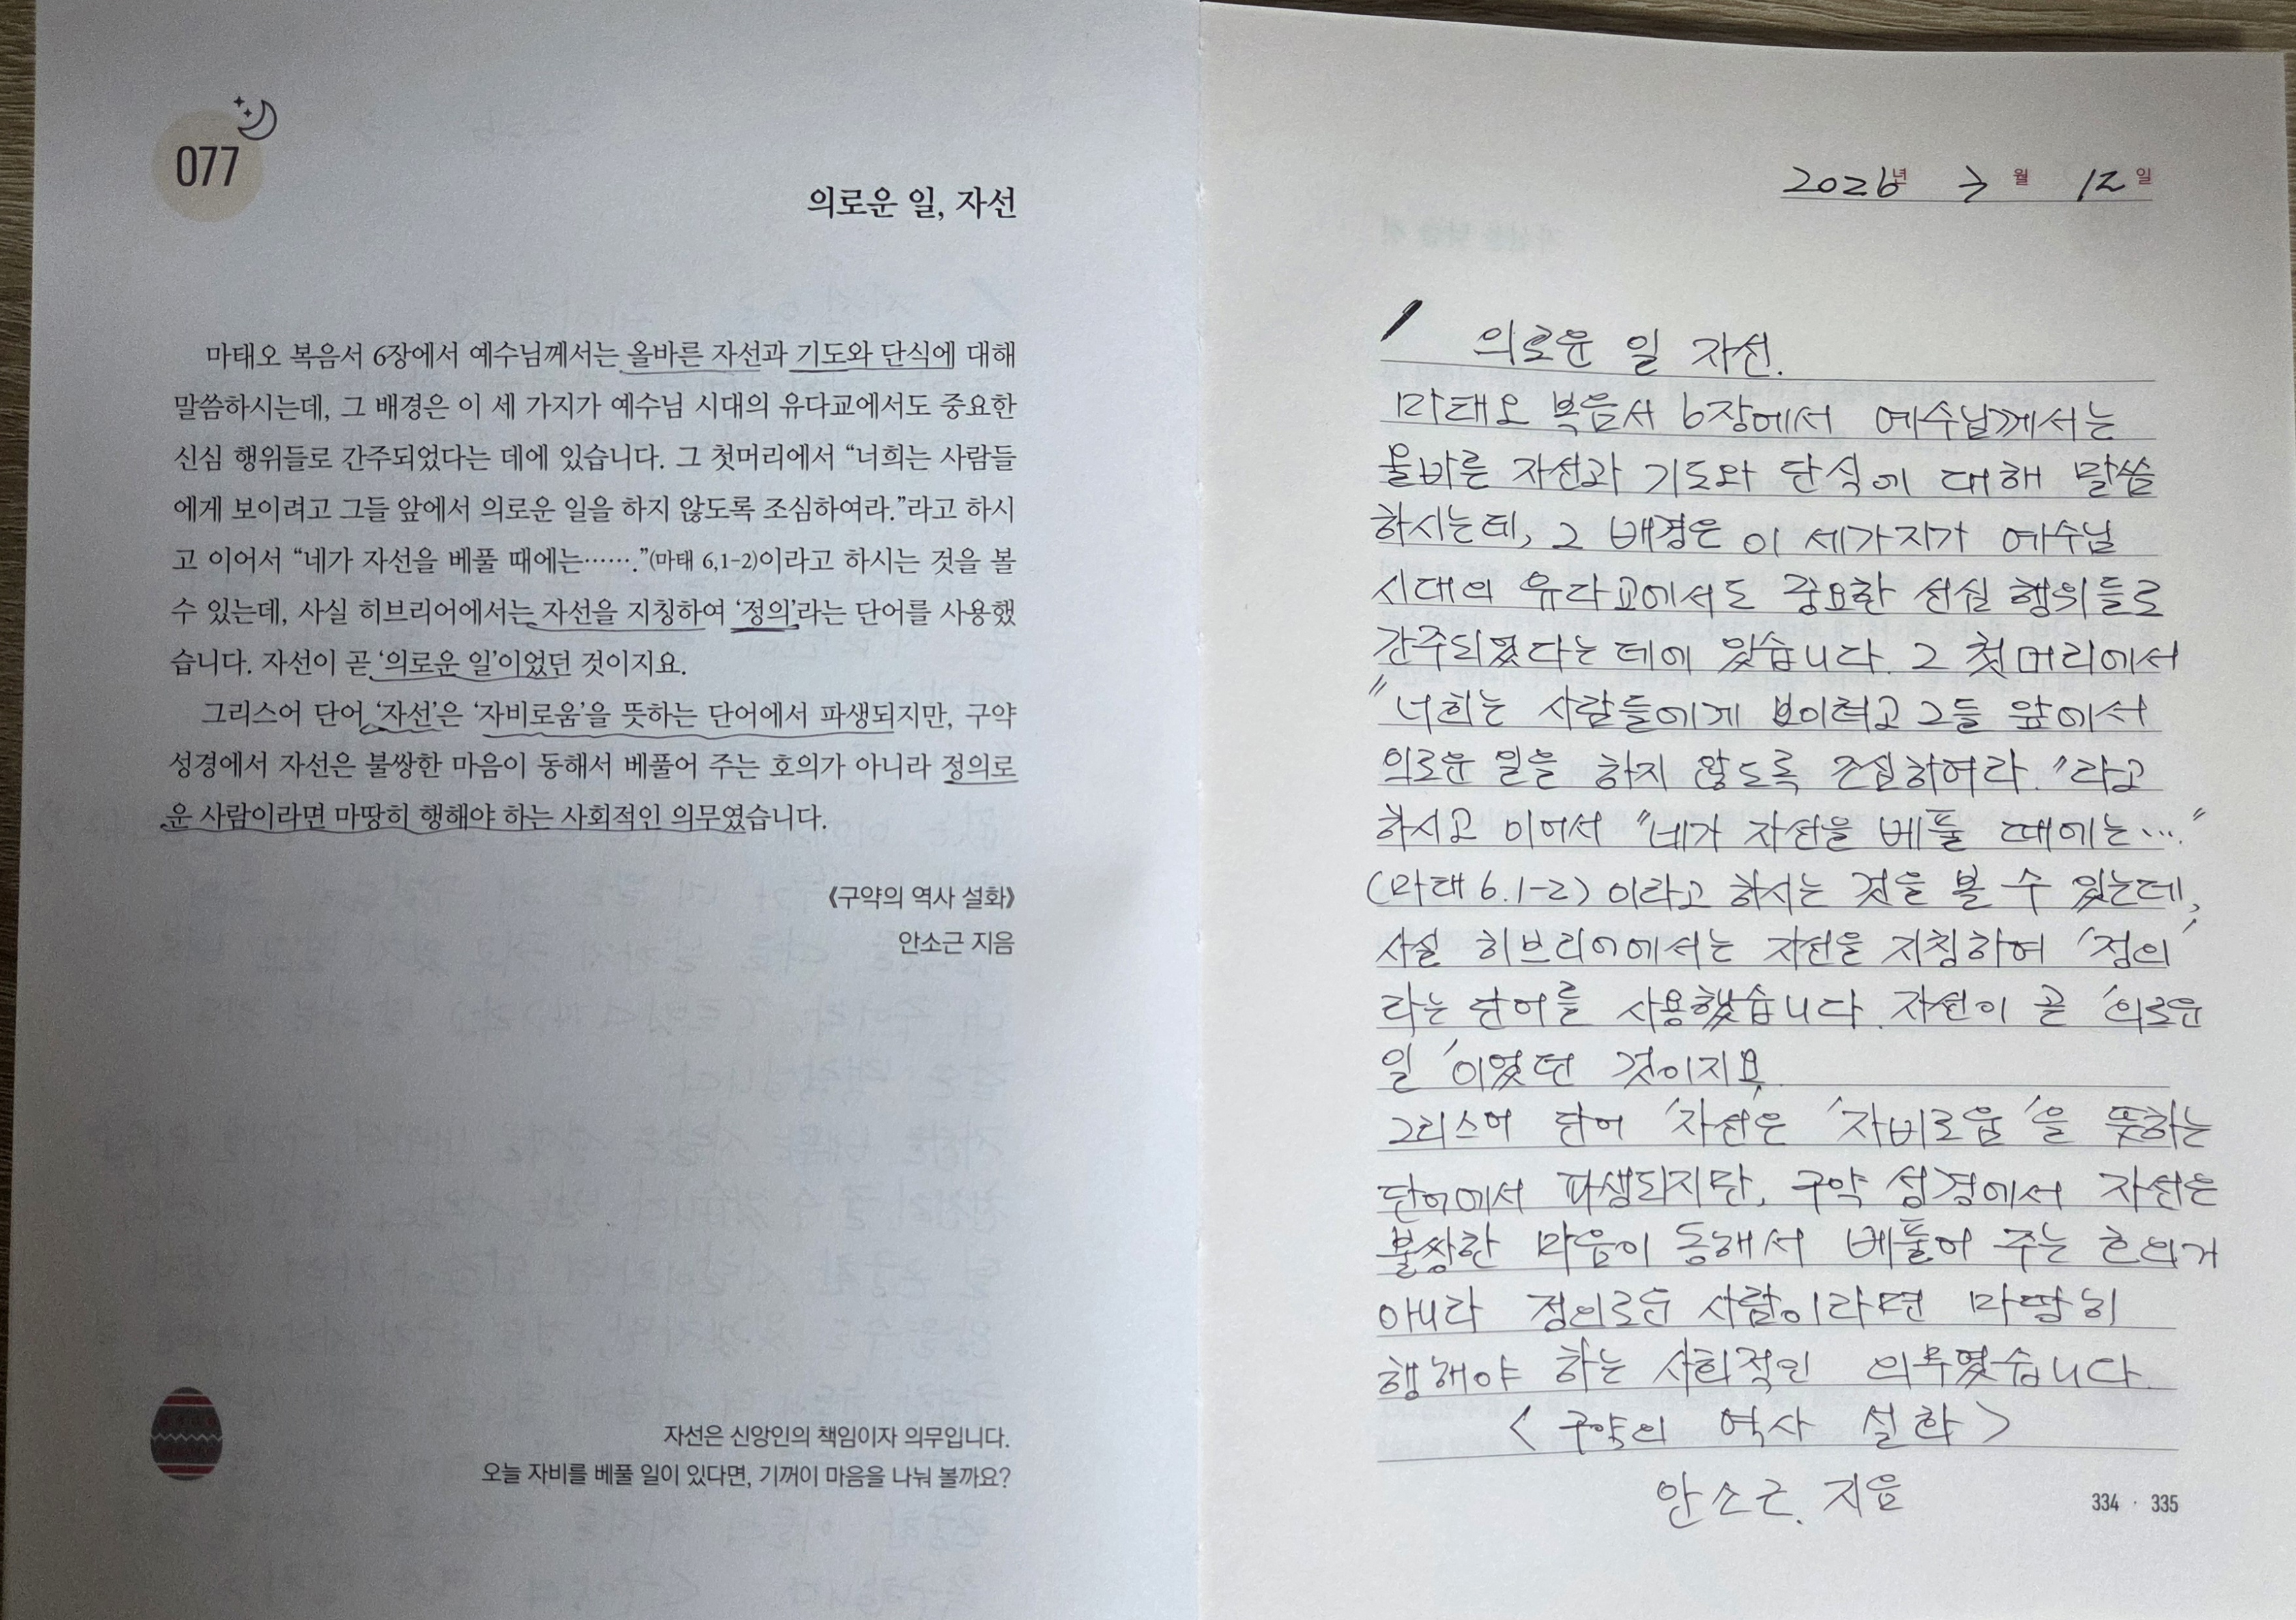 077
의로운 일, 자선
마태오 복음서 6장에서 예수님께서는 올바른 자선과 기도와 단식에 대해
말씀하시는데, 그 배경은 이 세 가지가 예수님 시대의 유다교에서도 중요한
신심 행위들로 간주되었다는 데에 있습니다. 그 첫머리에서 “너희는 사람들
에게 보이려고 그들 앞에서 의로운 일을 하지 않도록 조심하여라.”라고 하시
고 이어서 “네가 자선을 베풀 때에는…….”(마태 6,1-2)이라고 하시는 것을 볼
수 있는데, 사실 히브리어에서는 자선을 지칭하여 ‘정의’라는 단어를 사용했
습니다. 자선이 곧 ‘의로운 일’이었던 것이지요.
그리스어 단어 ‘자선’은 ‘자비로움’을 뜻하는 단어에서 파생되지만, 구약
성경에서 자선은 불쌍한 마음이 동해서 베풀어 주는 호의가 아니라 정의로
운 사람이라면 마땅히 행해야 하는 사회적인 의무였습니다.
《구약의 역사 설화》
안소근 지음
자선은 신앙인의 책임이자 의무입니다.
오늘 자비를 베풀 일이 있다면, 기꺼이 마음을 나눠 볼까요?
2026년 3월 12일
의로운 일 자선.
마태오 복음서 6장에서 예수님께서는
올바른 자선과 기도와 단식에 대해 말씀
하시는데, 그 배경은 이 세가지가 예수님
시대의 유다교에서도 중요한 신심 행위들로
간주되었다는 데에 있습니다. 그 첫머리에서
"너희는 사람들에게 보이려고 그들 앞에서
의로운 일을 하지 않도록 조심하여라."라고
하시고 이어서 "네가 자선을 베풀 때에는..."
(마태 6.1-2) 이라고 하시는 것을 볼 수 있는데,
사실 히브리어에서는 자선을 지칭하여 '정의'
라는 단어를 사용했습니다. 자선이 곧 '의로운
일'이었던 것이지요
그리스어 단어 '자선'은 '자비로움'을 뜻하는
단어에서 파생되지만, 구약 성경에서 자선은
불쌍한 마음이 동해서 베풀어 주는 호의가
아니라 정의로운 사람이라면 마땅히
행해야 하는 사회적인 의무였습니다.
<구약의 역사 설화>
안소근. 지음
334 · 335